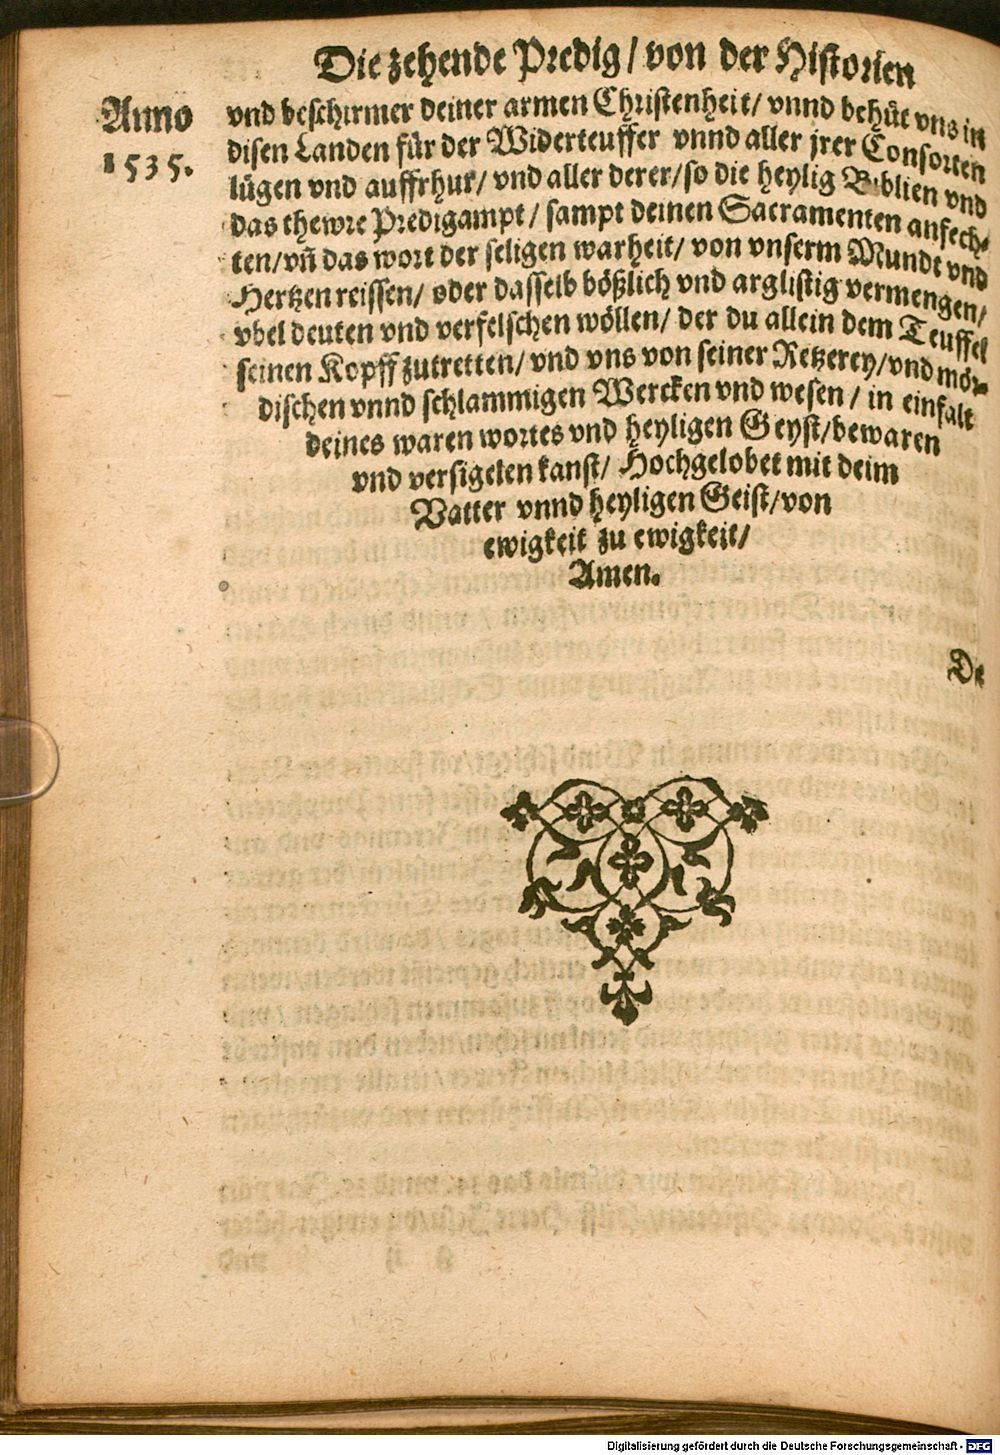 Die zehende Predig / von der Historien
Anno
1535.
vnd beschirmer deiner armen Christenheit / vnnd behüt vns in
disen Landen für der Widerteuffer vnnd aller jrer Consorten
lügen vnd auffrhur / vnd aller derer / so die heylig Biblien vnd
das thewre Predigampt / sampt deinen Sacramenten anfech-
ten / vñ das wort der seligen warheit / von vnserm Mundt vnd
Hertzen reissen / oder dasselb bößlich vnd arglistig vermengen /
vbel deuten vnd verfelschen wöllen / der du allein dem Teuffel
seinen Kopff zutretten / vnd vns von seiner Ketzerey / vnd mör-
dischen vnnd schlammigen Wercken vnd wesen / in einfalt
deines waren wortes vnd heyligen Geyst / bewaren
vnd versigelen kanst / Hochgelobet mit deim
Vatter vnnd heyligen Geist / von
ewigkeit zu ewigkeit /
Amen.
De
Digitalisierung gefördert durch die Deutsche Forschungsgemeinschaft - DFG